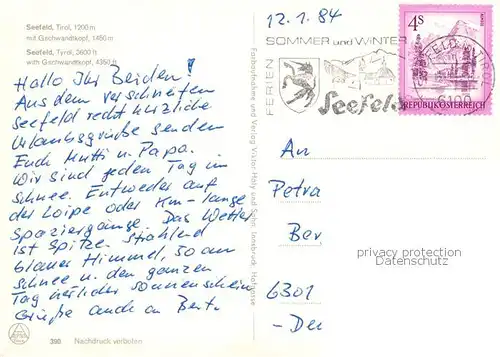 Seefeld, Tirol, 1200 m
mit Gschwandtkopf, 1450 m
Seefeld, Tyrol, 3600 ft
with Gschwandtkopf, 4350 ft
Hallo Ihr Beiden!
Aus dem verschneiten
Seefeld recht herzliche
Urlaubsgrüße senden
Euch Mutti u. Papa.
Wir sind jeden Tag im
Schnee. Entweder auf
der Loipe oder km-lange
Spaziergänge. Das Wetter
ist Spitze. Strahlend
blauer Himmel, 50 cm
Schnee u. den ganzen
Tag herrlicher Sonnenschein
Grüße auch an Bert.
390 Nachdruck verboten
Farbaufnahme und Verlag Viktor
Innsbruck
12.1.84
SOMMER und WINTER
FERIEN
Seefeld
4S
REPUBLIK ÖSTERREICH
SEEFELD IN TIROL
6100
An
Petra
Ber
privacy protection
Datenschutz
6301
-Deu